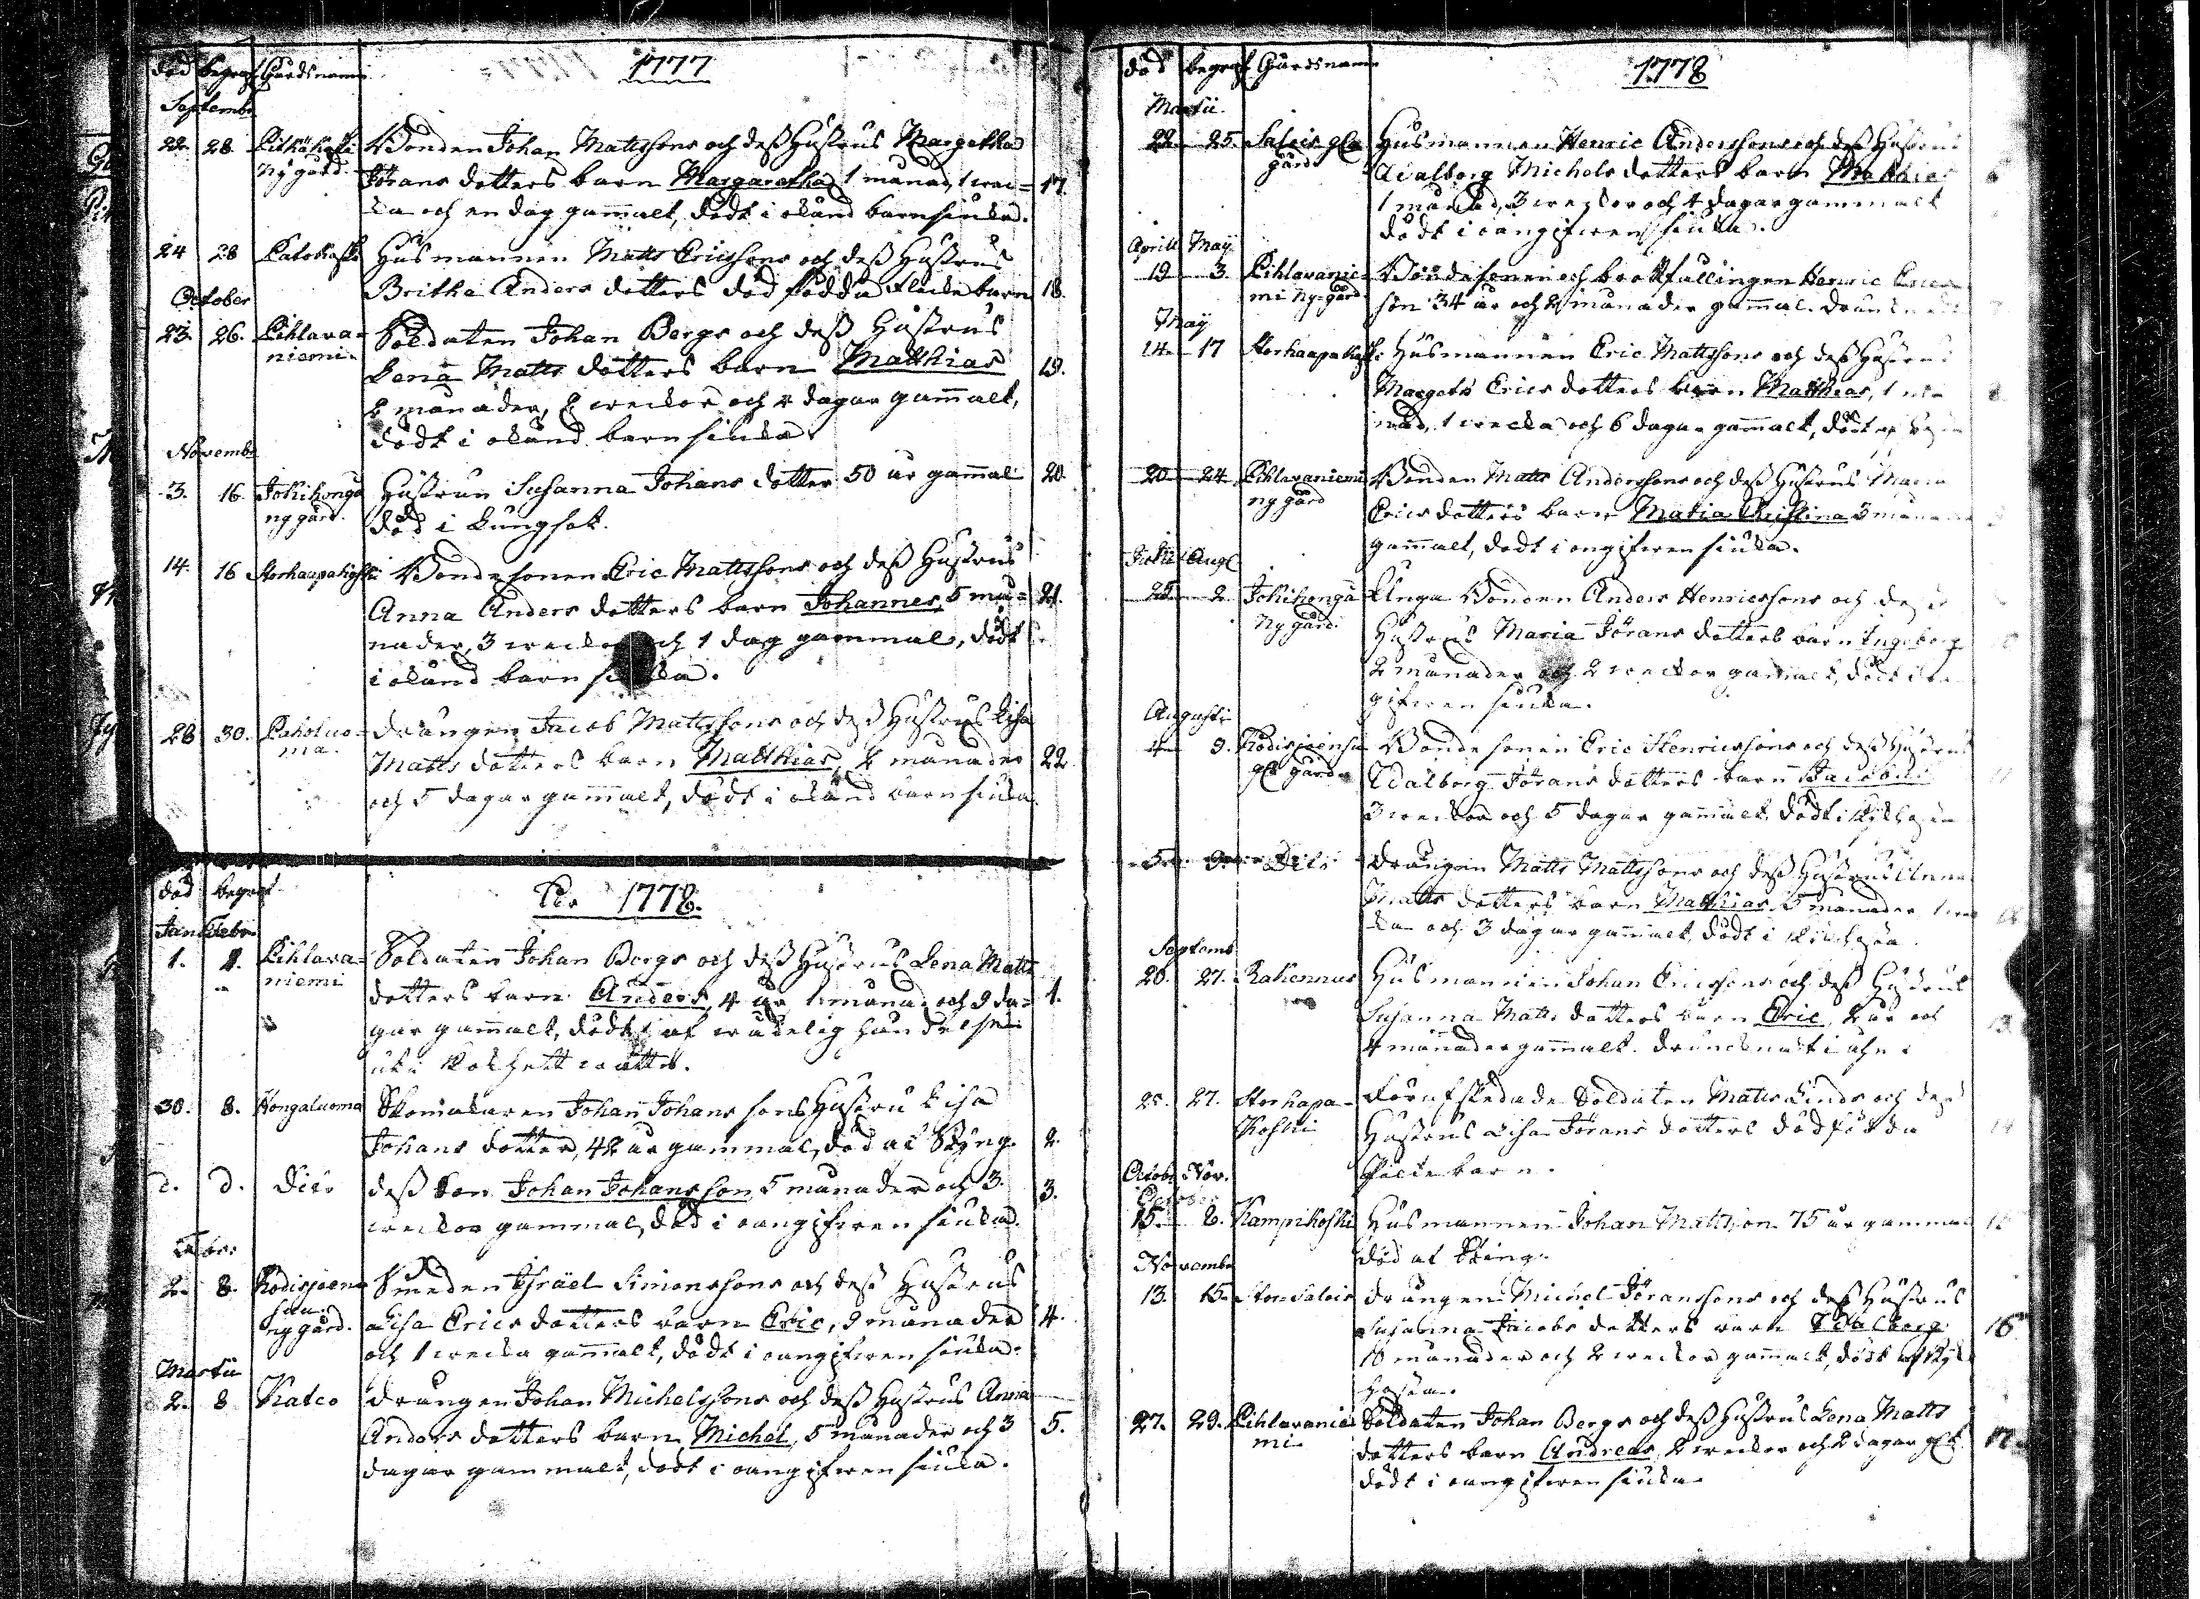 död begraf Gårdsnamn 1777
Septembr
22. 28. Pitkäkoski Bonden Johan Mattssons och dess Hustrus Margetha
Ny gård. Jörans dotters barn Margaretha 1 månad, 1 wec= 17.
ka och en dag gammalt, dödt i okänd barnsiuka.
24 28 Katokoski Husmannen Matts Ericssons och dess Hustrus
Britha Anders dotters död födda flickebarn 18.
October
23. 26. Pihlava= Soldaten Johan Bergs och dess Hustrus
niemi. Lena Matts dotters barn Matthias 19.
2 månader, 2 weckor och 4 dagar gammalt,
dödt i okänd barnsiuka.
Novembr
3. 16 Jokihonga Hustrun Susanna Johans dotter 50 år gammal 20.
ny gård. död i Lungsot.
14. 16 Storhaapakoski Bondesonen Eric Mattssons och dess Hustrus
Anna Anders dotters barn Johannes, 5 må= 21.
nader, 3 weckor och 1 dag gammal, dödt
i okänd barnsiuka.
28 30. Paholuo= Drängen Jacob Mattssons och dess Hustrus Lisa
ma. Matts dotters barn Matthias, 2 månader 22
och 5 dagar gammalt, dödt i okänd barnsiuka.
död begraf
1778.
Jan Febr
1. 1. Pihlava= Soldaten Johan Bergs och dess Hustrus Lena Matts
niemi dotters barn Anders, 4 år 1 månad och 9 da= 1.
gar gammalt, dödt af wådelig händelse
uti kokhett watten.
30. 8. Hongaluoma Skomakaren Johan Johanssons Hustru Lisa
Johans dotter, 42 år gammal, död af Styng. 2.
d. d. Dito dess Son Johan Johansson 5 månader och 3 3.
weckor gammal, död i oangifwen siukd.
Febr.
2. 8. Rodisjoen= Smeden Israël Simonssons och dess Hustrus
suu ny gård. Lisa Erics dotters barn Eric, 9 månader 4.
och 1 wecka gammalt, dödt i oangifwen siukd.
Martii
2. 8 Katco Drängen Johan Michelssons och dess Hustrus Anna
Anders dotters barn Michel, 5 månader och 3 5.
dagar gammalt, dödt i oangifwen siukd.
död begraf Gårdsnamn 1778
Martii.
22 25. Salois gla Husmannen Henric Anderssons och dess Hustrus
gård Walborg Michels dotters barn Matthias
1 månad, 3 weckor och 4 dagar gammalt
dödt i oangifwen siukd.
Aprill May
19 3. Pihlavanie= Bondesonen och brottfällingen Henric Erics
mi Ny-gård son 34 år och 2 månader gammal. Drunknade
May
14 17 Storhaapakoski Husmannen Eric Mattssons och dess Hustrus
Margeta Erics dotters barn Matthias, 1 må
nad, 1 wecka och 6 dagar gammalt, dödt
20 24 Pihlavaniemi Bonden Matts Anderssons och dess Hustrus Maria
ny gård Erics dotters barn Maria Christina 3 månader
gammalt, dödt i oangifwen siukd.
Julii Aug
25 2. Jokihonga Unga Bonden Anders Henricssons och dess
Ny gård. Hustrus Maria Jörans dotters barn Ingeborg
2 månader och 2 weckor gammalt, dödt i oan
gifwen siukd.
Augusti
4 9. Rodisjoensu Bonde sonen Eric Henricssons och dess Hustrus
gl gård Walborg Jörans dotters barn Jacobus
3 weckor och 5 dagar gammalt, dödt i Kikhosta
5 9. Dito Drängen Matts Mattssons och dess Hustrus Anna
Matts dotters barn Matthias 5 månader 1 wec
ka och 3 dagar gammalt, dödt i Kikhosta.
Septemb
26. 27. Rahennus Husmannen Johan Ericssons och dess Hustrus
Susanna Matts dotters barn Eric, 2 år och 13
4 månader gammalt. Drunknat i åhn.
25. 27. Storhapa= Förafskedade Soldaten Matts Linds och dess
koski Hustrus Lisa Jörans dotters dödfödda 14
flickebarn.
Octobr Nov.
October
15. 2. Kampikoski Husmannen Johan Mattsson 75 år gammal 15
död af Sting.
Novembr
13. 15. Stor Salois Drängen Michel Jöranssons och dess Hustrus
Susanna Jacobs dotters barn Walborg 16
10 månader och 2 weckor gammalt, dödt af Kik
hosta.
27. 29. Pihlavanie= Soldaten Johan Bergs och dess Hustrus Lena Matts
mi dotters barn Andreas, 2 weckor och 2 dagar glt 17.
dödt i oangifwen siukd